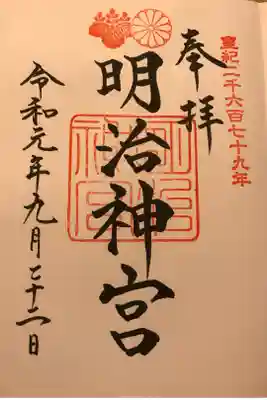 皇紀二千六百七十九年
奉拝
明治神宮
明治神宮
令和元年九月二十二日